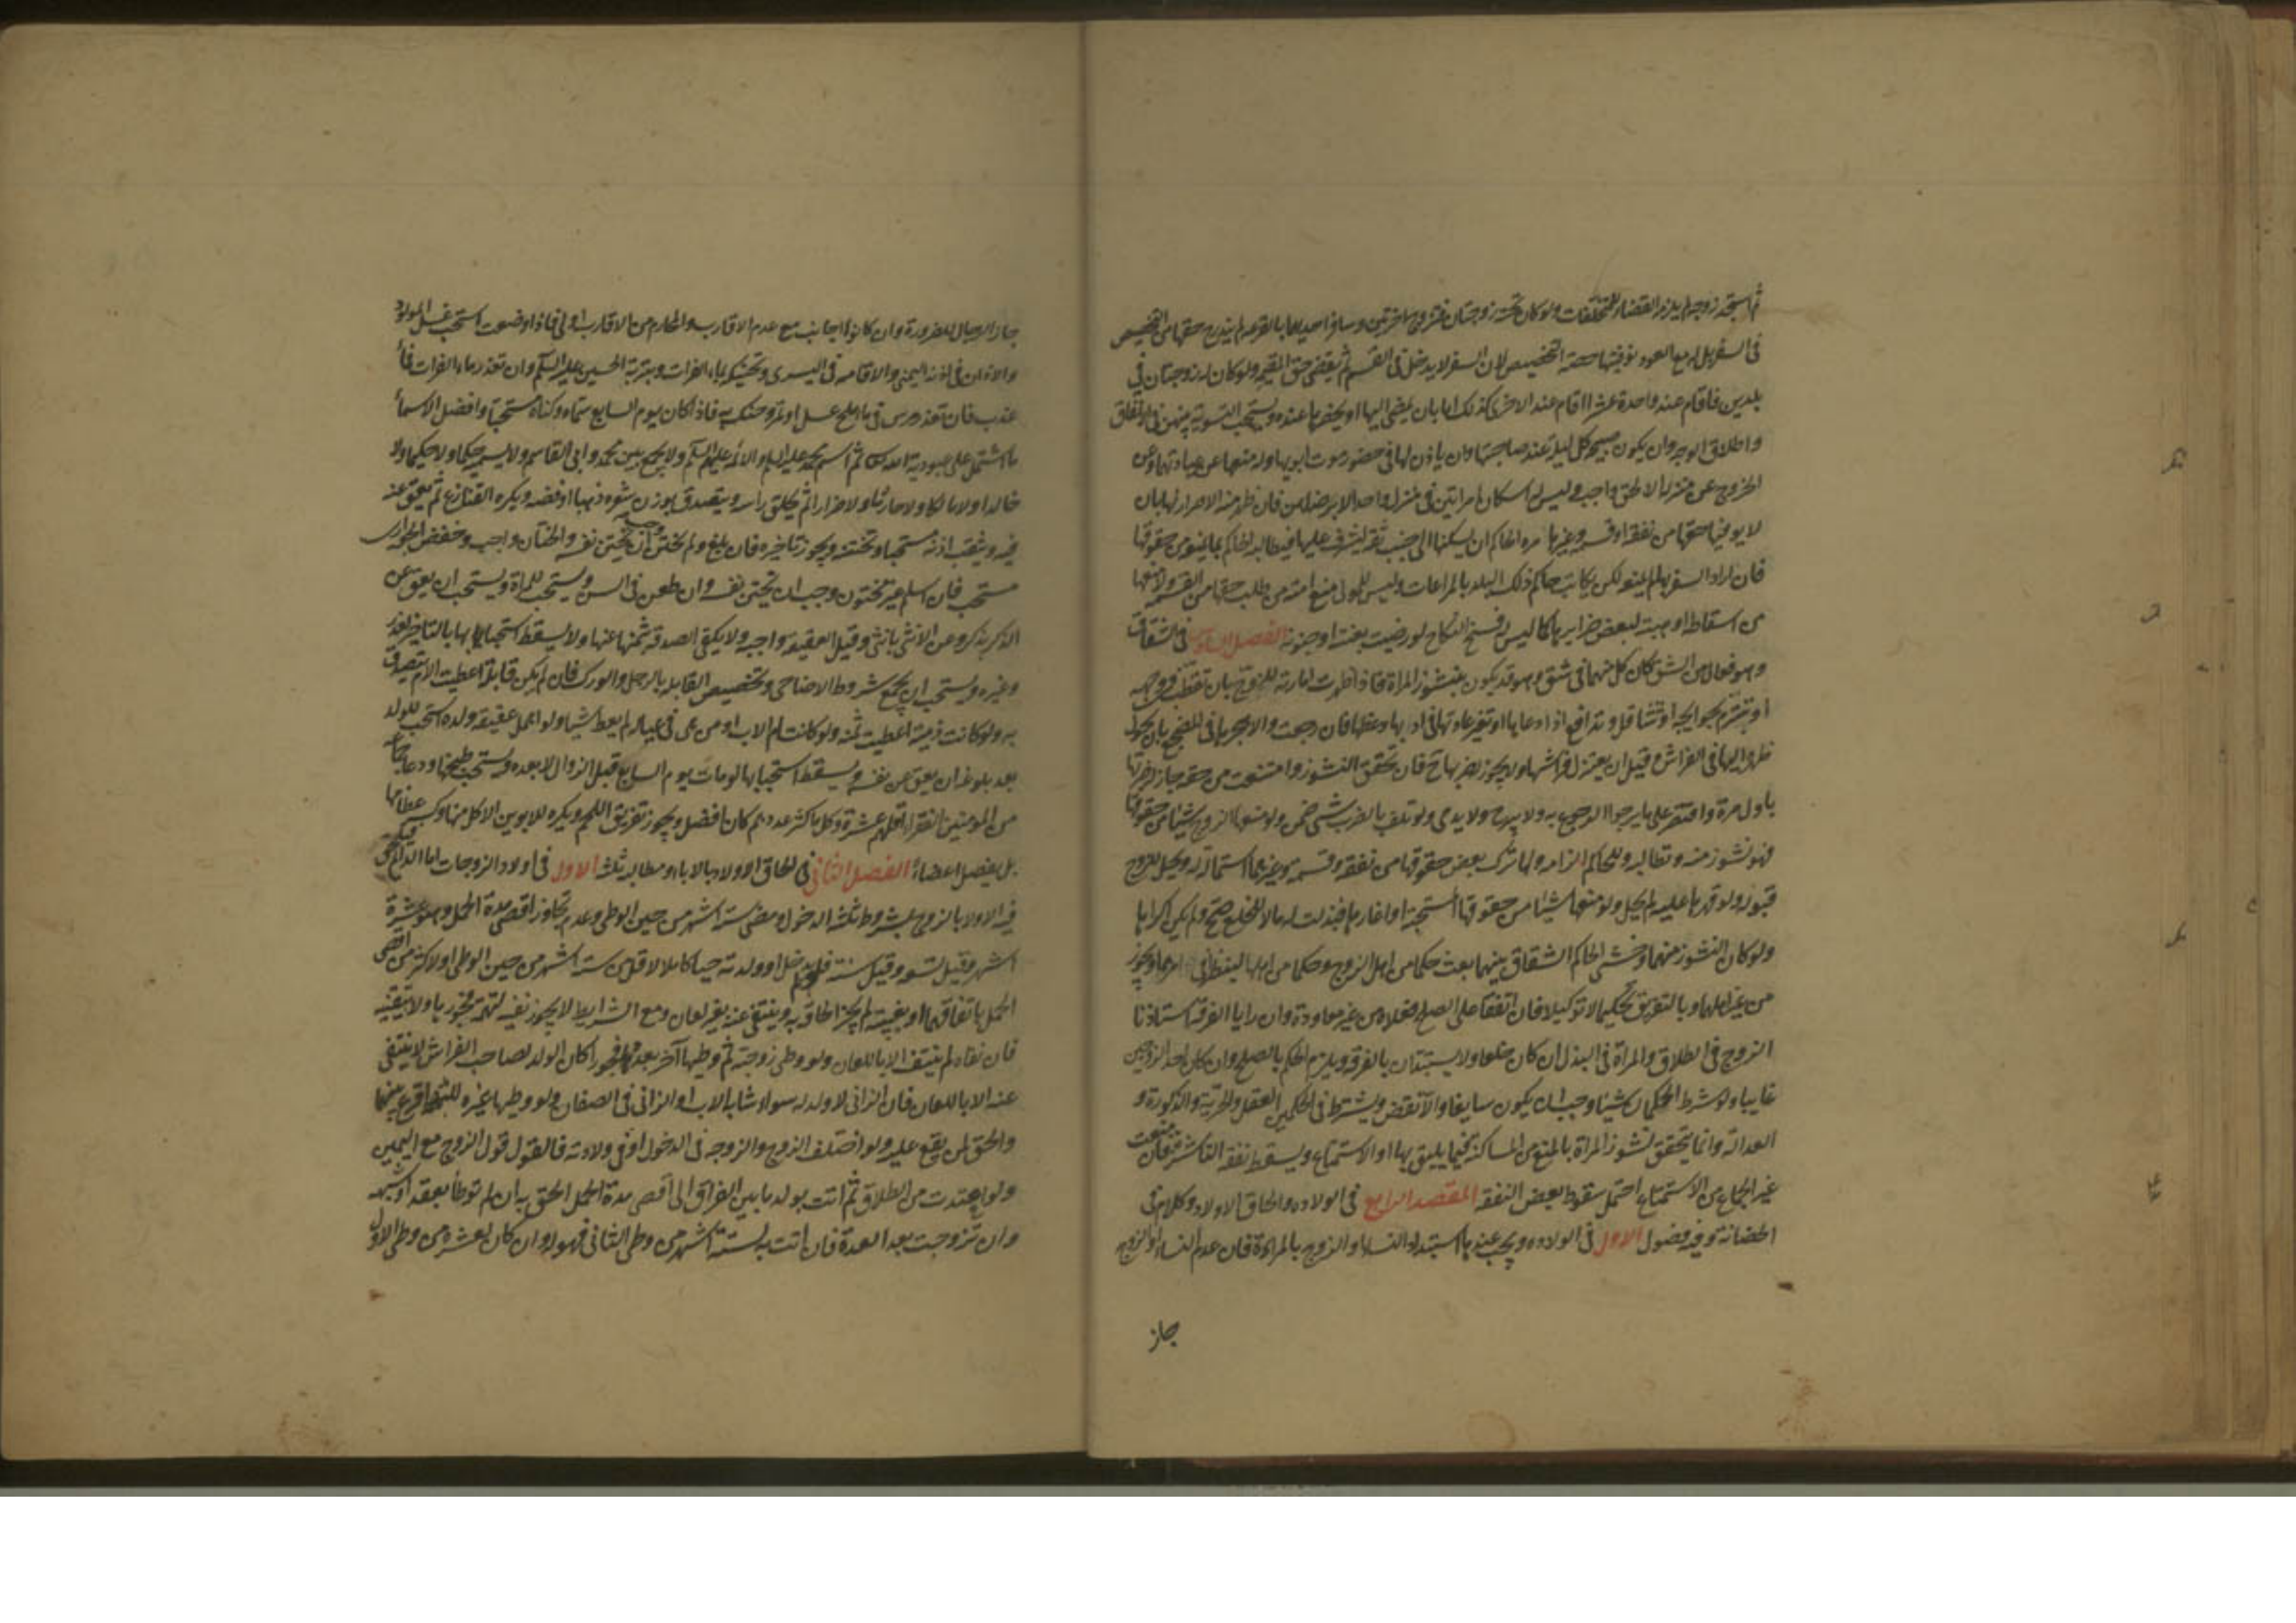 ثم استجد زوجة لم يلزمه القضاء للمتخلفات ولو كان تحته زوجتان فتزوج اخرتين وسافر احديهما بالقرعة لم يندرج حقها من التخصيص
في السفر بل له مع العود توفيتها حصة التخصيص لان السفر لا يدخل في القسم ثم يقضي حق المقيمة ولو كان له زوجتان في
بلدين فاقام عند واحدة عشرا اقام عند الاخرى كذلك اما بان يمضي اليها او يحضرها عنده ويستحب التسوية بينهن في الانفاق
واطلاق الوجه وان يكون صبيحة كل ليلة عند صاحبتها وان ياذن لها في حضور موت ابويها وله منعها عن عيادتهما وعن
الخروج عن منزله الا لحق واجب وليس له اسكان امراتين في منزل واحد الا برضاهما فان ظهر منه الاضرار لها بان
لا يوفيها حقها من نفقة او قسمة وغيرها امره الحاكم ان يسكنها الى جنب ثقة ليشرف عليها فيطالبه الحاكم بما يمنعه من حقوقها
فان اراد السفر بها لم يمنعه لكن يكاتب حاكم ذلك البلد بالمراعات وليس للمولى منع امته من طلب حقها من القسمة ولا منعها
من اسقاطه او هبته لبعض ضرايرها كما ليس له فسخ النكاح لو رضيت بعنته او جنونه الفصل في الشقاق
وهو فعال من الشق كان كل منهما في شق وهو قد يكون بنشوز المراة فاذا ظهرت امارته للزوج بان تقطب في وجهه
او تتبرم بحوايجه او تتثاقل وتدافع اذا دعاها او تغير عادتها في ادبها وعظها فان رجعت والا هجرها في المضجع بان يحول
ظهره اليها في الفراش وقيل ان يعتزل فراشها ولا يجوز ضربها ح فان تحقق النشوز وامتنعت من حقه جاز له ضربها
باول مرة واقتصر على ما يرجوا الرجوع به ولا يبرح ولا يدمى ولو تلف بالضرب شيء ضمن ولو منعها الزوج شيئا من حقوقها
فهو نشوز منه وتطالبه وللحاكم الزامه ولها ترك بعض حقوقها من نفقة وقسمة وغيرهما استمالة له ويحل للزوج
قبوله ولو قهرها عليه لم يحل ولو منعها شيئا من حقوقها المستحبة او اغارها فبذلت له مالا للخلع صح ولم يكن اكراها
ولو كان النشوز منهما وخشي الحاكم الشقاق بينهما بعث حكما من اهل الزوج وحكما من اهلها لينظرا في امرهما ويجوز
من غير اهلهما وبالتفريق تحكيما لا توكيلا فان اتفقا على الصلح فعلاه من غير معاودة وان رايا الفرقة استاذنا
الزوج في الطلاق والمراة في البذل ان كان خلعا ولا يستبدان بالفرقة ويلزم الحكم بالصلح وان كان احد الزوجين
غايبا ولو شرط الحكمان شيئا وجب ان يكون سايغا والا نقض ويشترط في الحكمين العقل والحرية والذكورة و
العدالة وانما يتحقق نشوز المراة بالمنع من المساكنة فيما يليق بها او الاستمتاع ويسقط نفقة الناشز فان منعت
غير الجماع من الاستمتاع احتمل سقوط بعض النفقة المقصد الرابع في الولادة والحاق الاولاد وكلام في
الحضانة وفيه فصول الاول في الولادة ويجب عندها استبداد النساء او الزوج بالمراة فان عدم النساء او الزوج
جاز
جاز الرجال للضرورة وان كانوا اجانب مع عدم الاقارب والمحارم من الاقارب اولى فاذا وضعت استحب غسل المولود
والاذان في اذنه اليمنى والاقامة في اليسرى وتحنيكه بماء الفرات وبتربة الحسين عليه السلام وان تعذر ماء الفرات فماء
عذب فان تعذر مرس في ماء ملح عسل او تمر وحنك به فاذا كان يوم السابع سماه وكناه مستحبا وافضل الاسماء
ما اشتمل على عبودية الله تعالى ثم اسم محمد عليه السلام والائمة عليهم السلام ولا يجمع بين محمد وابي القاسم ولا يسميه حكما ولا حكيما ولا
خالدا ولا مالكا ولا حارثا ولا ضرارا ثم يحلق راسه ويتصدق بوزن شعره ذهبا او فضة ويكره القنازع ثم يعق عنه
فيه ويثقب اذنه مستحبا وتختنه ويجوز تاخيره فان بلغ ولم يختتن وجب ان يختتن نفسه والختان واجب وخفض الجواري
مستحب فان اسلم غير مختون وجب ان يختتن نفسه وان طعن في السن ويستحب للمراة ويستحب ان يعق عن
الذكر بذكر وعن الانثى بانثى وقيل العقيقة واجبة ولا يكفي الصدقة بثمنها عنها ولا يسقط استحبابها بالتاخير لعذر
وغيره ويستحب ان يجمع شروط الاضاحي وتخصيص القابلة بالرجل والورك فان لم يكن قابلة اعطيت الام تتصدق
به ولو كانت ذمية اعطيت ثمنه ولو كانت ام الاب او من هي في عياله لم يعط شيئا ولو اهمل عقيقة ولده استحب للولد
بعد بلوغه ان يعق عن نفسه ويسقط استحبابها لو مات يوم السابع قبل الزوال لا بعده ويستحب طبخها ودعا جماعة
من المومنين الفقراء اقلهم عشرة وكلما كثر عددهم كان افضل ويجوز تفريق اللحم ويكره للابوين الاكل منها وكسر عظامها
بل يفصل اعضاء الفصل الثاني في الحاق الاولاد بالاباء ومطالبه ثلثة الاول في اولاد الزوجات اما الدائم فيلحق
فيه الاولاد بالزوج بشروط ثلثة الدخول ومضي ستة اشهر من حين الوطي وعدم تجاوز اقصى مدة الحمل وهو عشرة
اشهر وقيل تسعة وقيل سنة فلو لم يدخل او ولدته حيا كاملا لاقل من ستة اشهر من حين الوطي او لاكثر من اقصى
الحمل باتفاقهما او بغيبته لم يجز الحاقه به وينتفي عنه بغير لعان ومع الشرايط لا يجوز نفيه لتهمة فجور ولا يتقيه
فان نفاه لم ينتف الا باللعان ولو وطي زوجته ثم وطيها آخر بعده فجورا كان الولد لصاحب الفراش لا ينتفي
عنه الا باللعان فان الزاني لا ولد له سواء شابه الاب او الزاني في الصفات ولو وطيها غيره للشبهة اقرع بينهما
والحق لمن يقع عليه ولو اختلف الزوج والزوجة في الدخول او في ولادته فالقول قول الزوج مع اليمين
ولو اعتدت من الطلاق ثم اتت بولد ما بين الفراق الى اقصى مدة الحمل الحق به ان لم توطأ بعقد او شبهة
وان تزوجت بعد العدة فان اتت به لستة اشهر من وطي الثاني فهو له وان كان لعشرة من وطي الاول